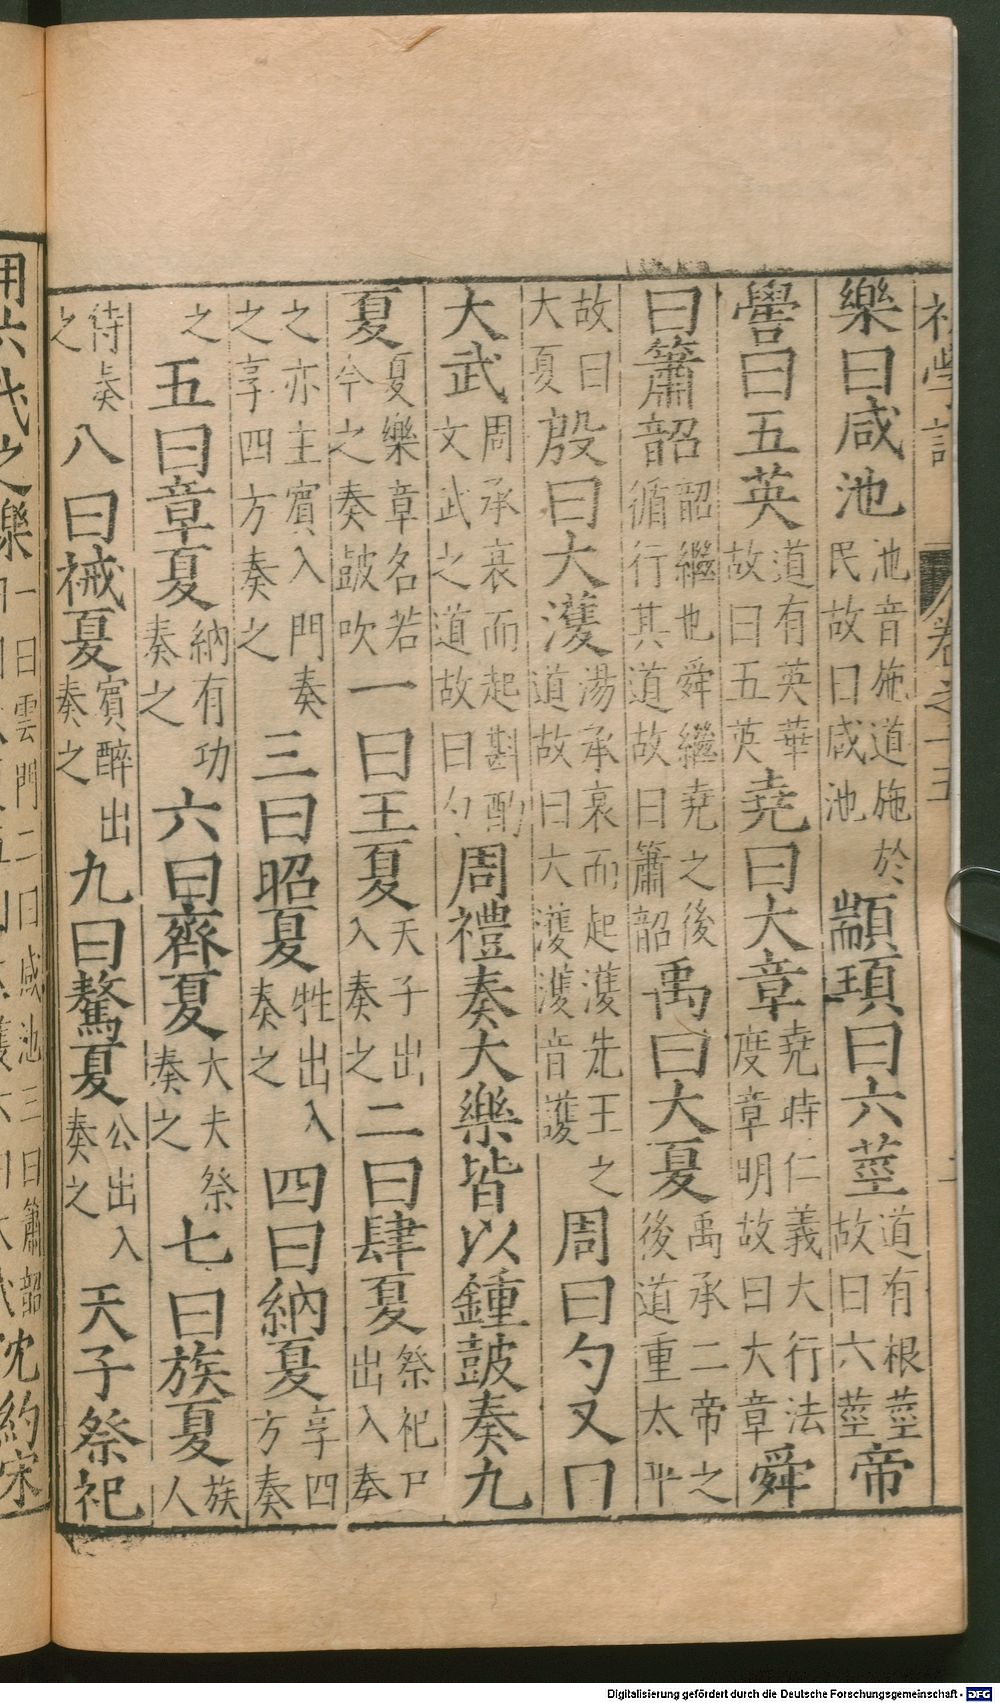 學記 卷之十五
樂曰咸池池音施道施於民故曰咸池顓頊曰六莖道有根莖故曰六莖帝
嚳曰五英道有英華故曰五英堯曰大章堯時仁義大行法度章明故曰大章舜
曰簫韶韶繼也舜繼堯之後循行其道故曰簫韶禹曰大夏禹承二帝之後道重太平
故曰大夏殷曰大濩湯承衰而起濩先王之道故曰大濩濩音護周曰勺又曰
大武周承衰而起斟酌文武之道故曰勺周禮奏大樂皆以鍾鼓奏九
夏夏樂章名若今之奏鼓吹一曰王夏天子出入奏之二曰肆夏祭祀尸出入奏
之亦主賓入門奏之享四方奏之三曰昭夏牲出入奏之四曰納夏享四方奏
之五曰章夏納有功奏之六曰齊夏大夫祭奏之七曰族夏族人
待奏之八曰祴夏賓醉出奏之九曰驁夏公出入奏之天子祭祀
用六代之樂一曰雲門二曰咸池三曰簫韶沈約宋
Digitalisierung gefördert durch die Deutsche Forschungsgemeinschaft - DFG